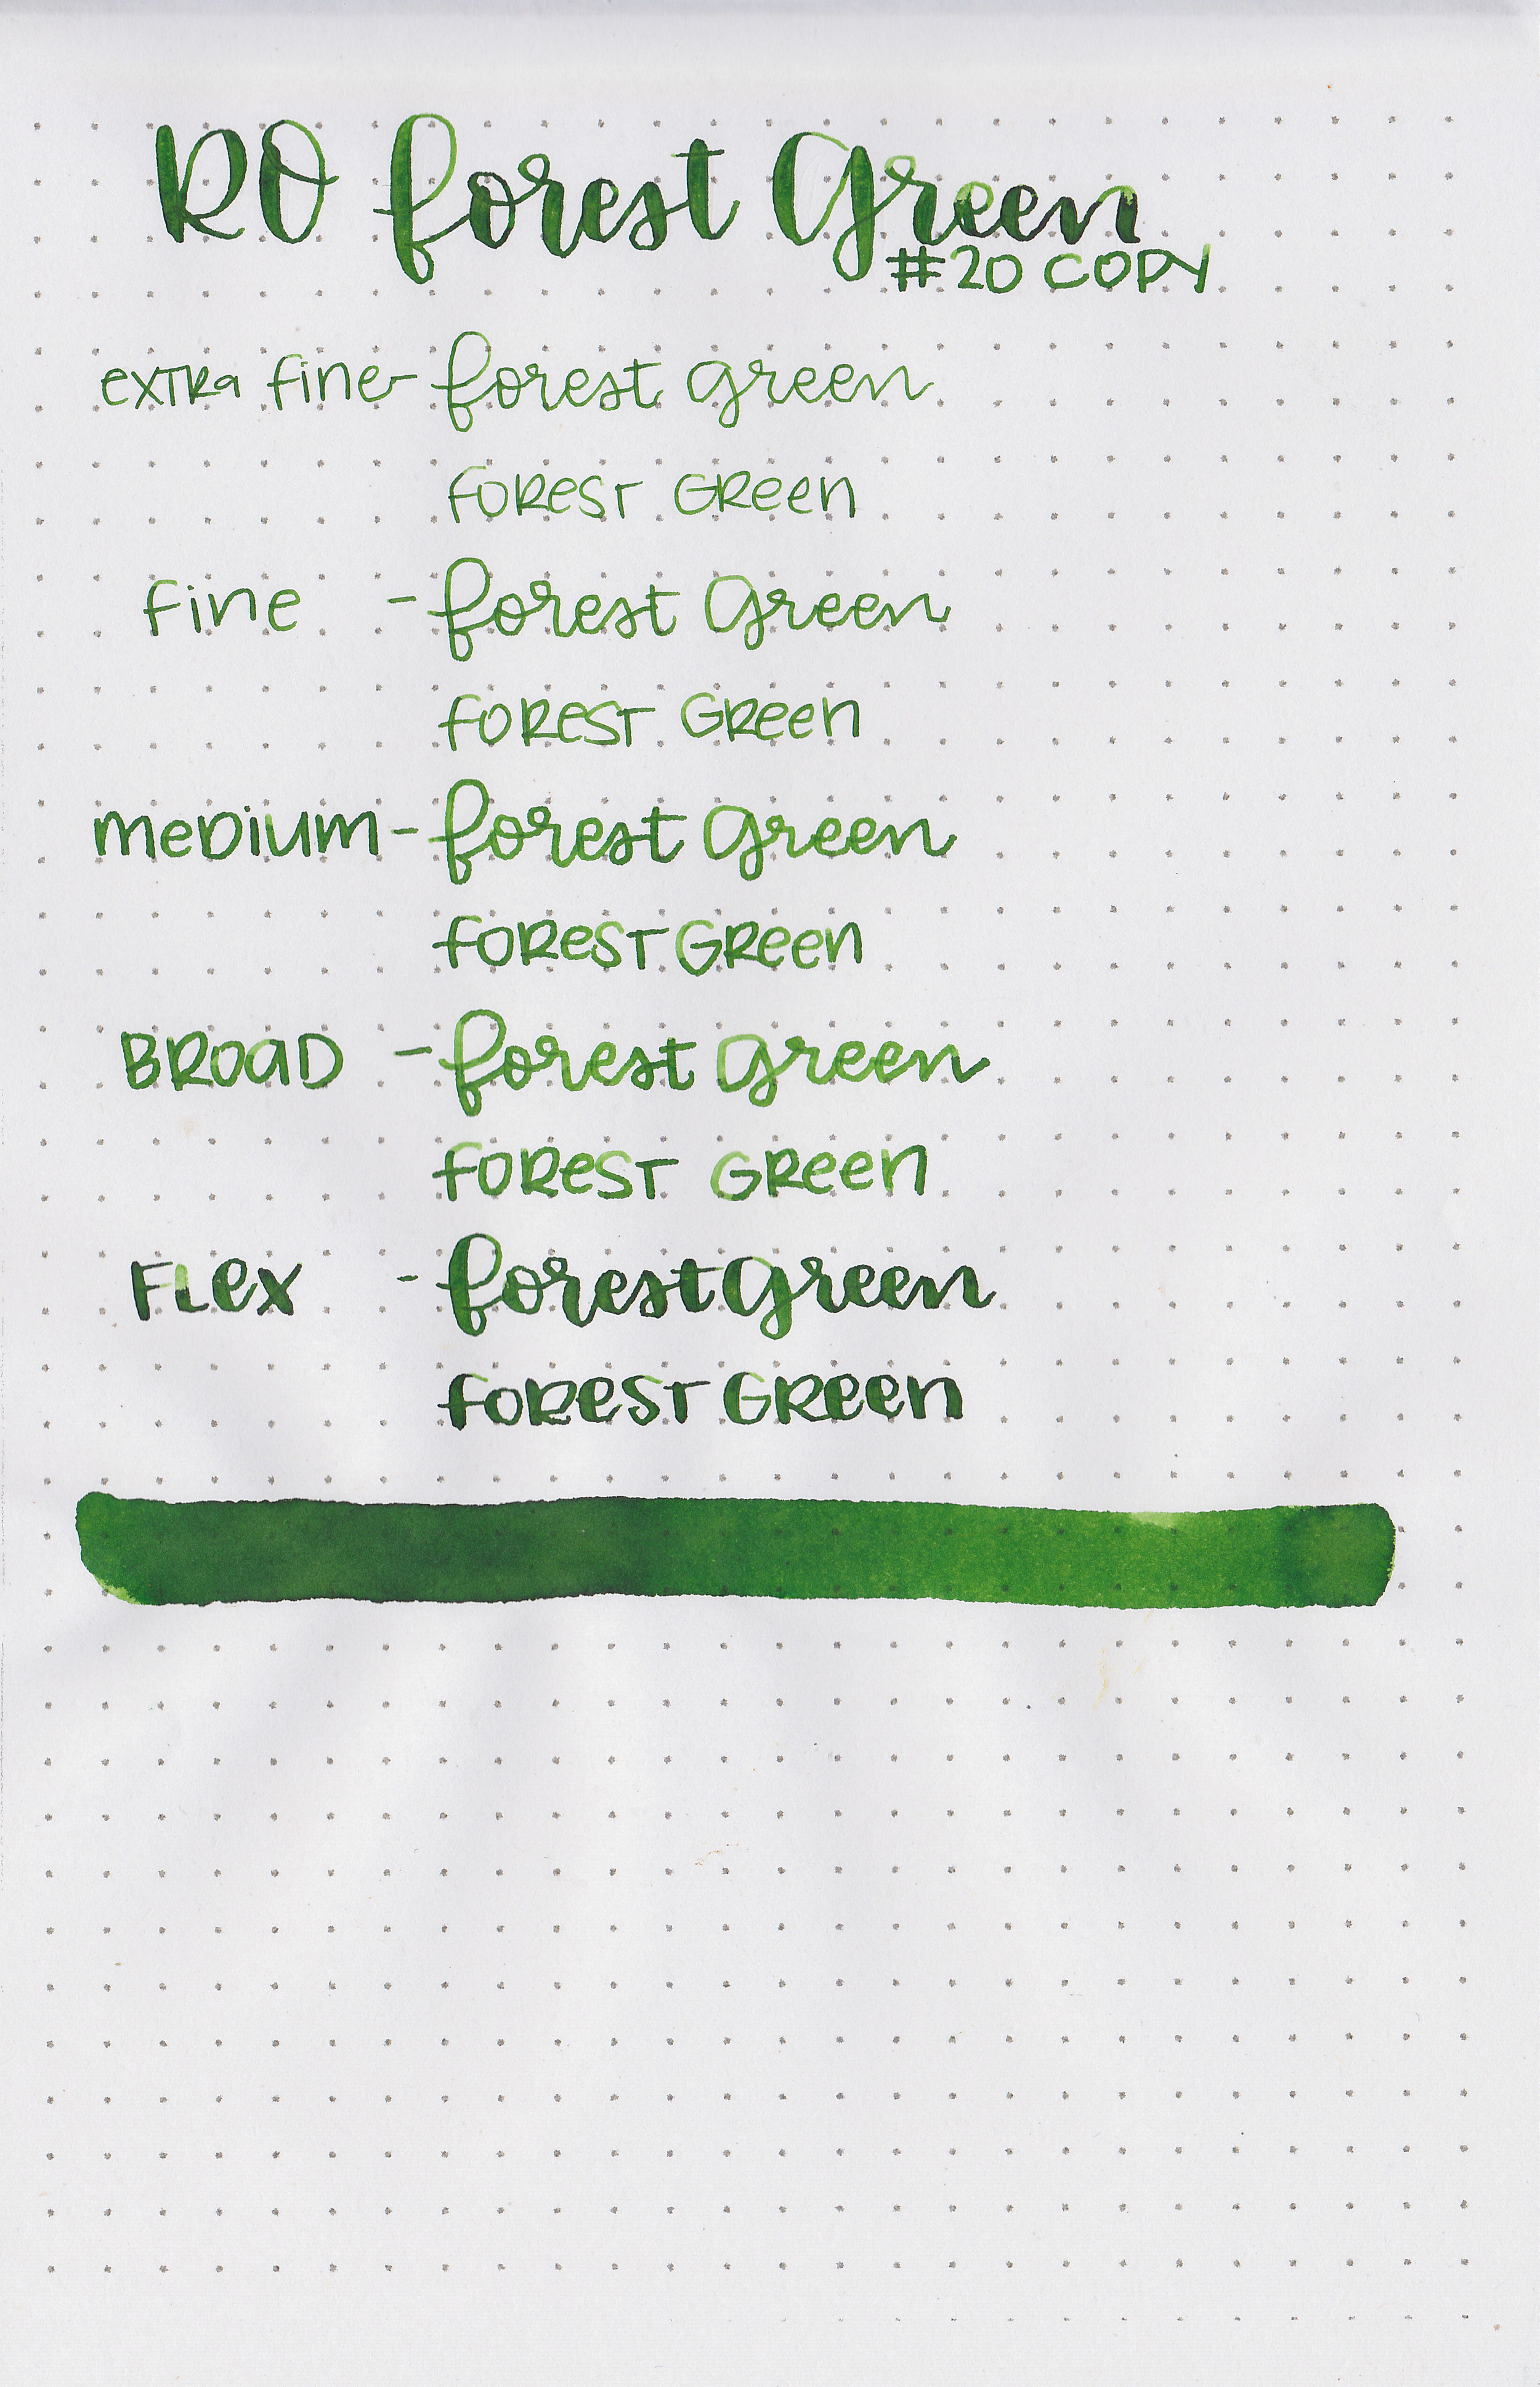 RO Forest Green
#20 COPY
extra fine - forest green
FOREST GREEN
fine - forest Green
FOREST GREEN
MEDIUM - forest Green
FOREST GREEN
BROAD - forest Green
FOREST GREEN
FLEX - forest Green
FOREST GREEN